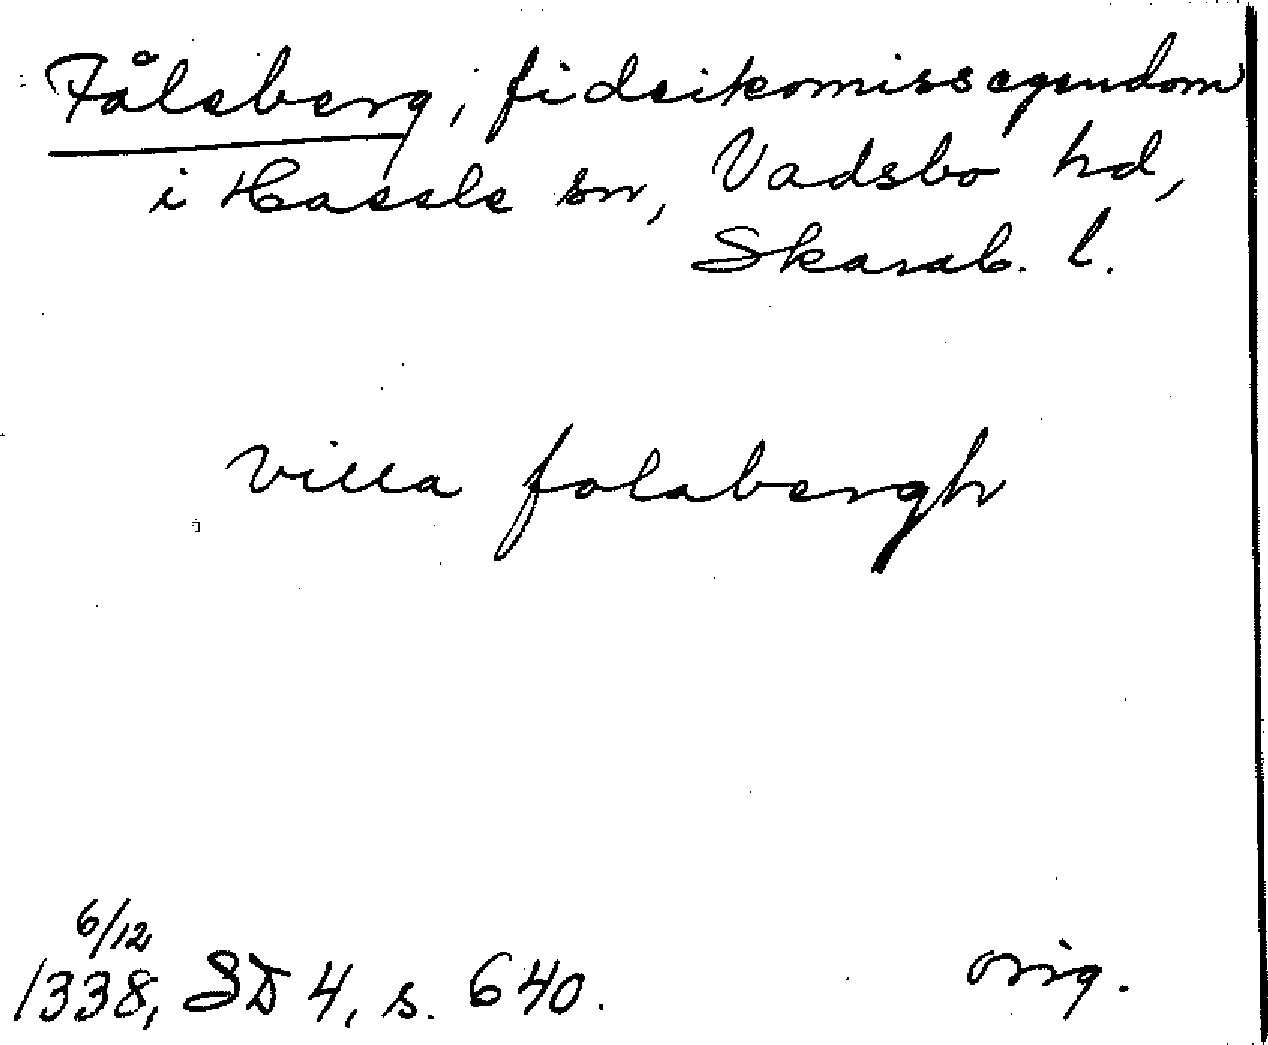 Fåleberg, fideikomissegendom
i Hassle sn, Vadsbo hd,
Skarab. l.
villa folabergh
6/12
1338, SD 4, s. 640.
orig.